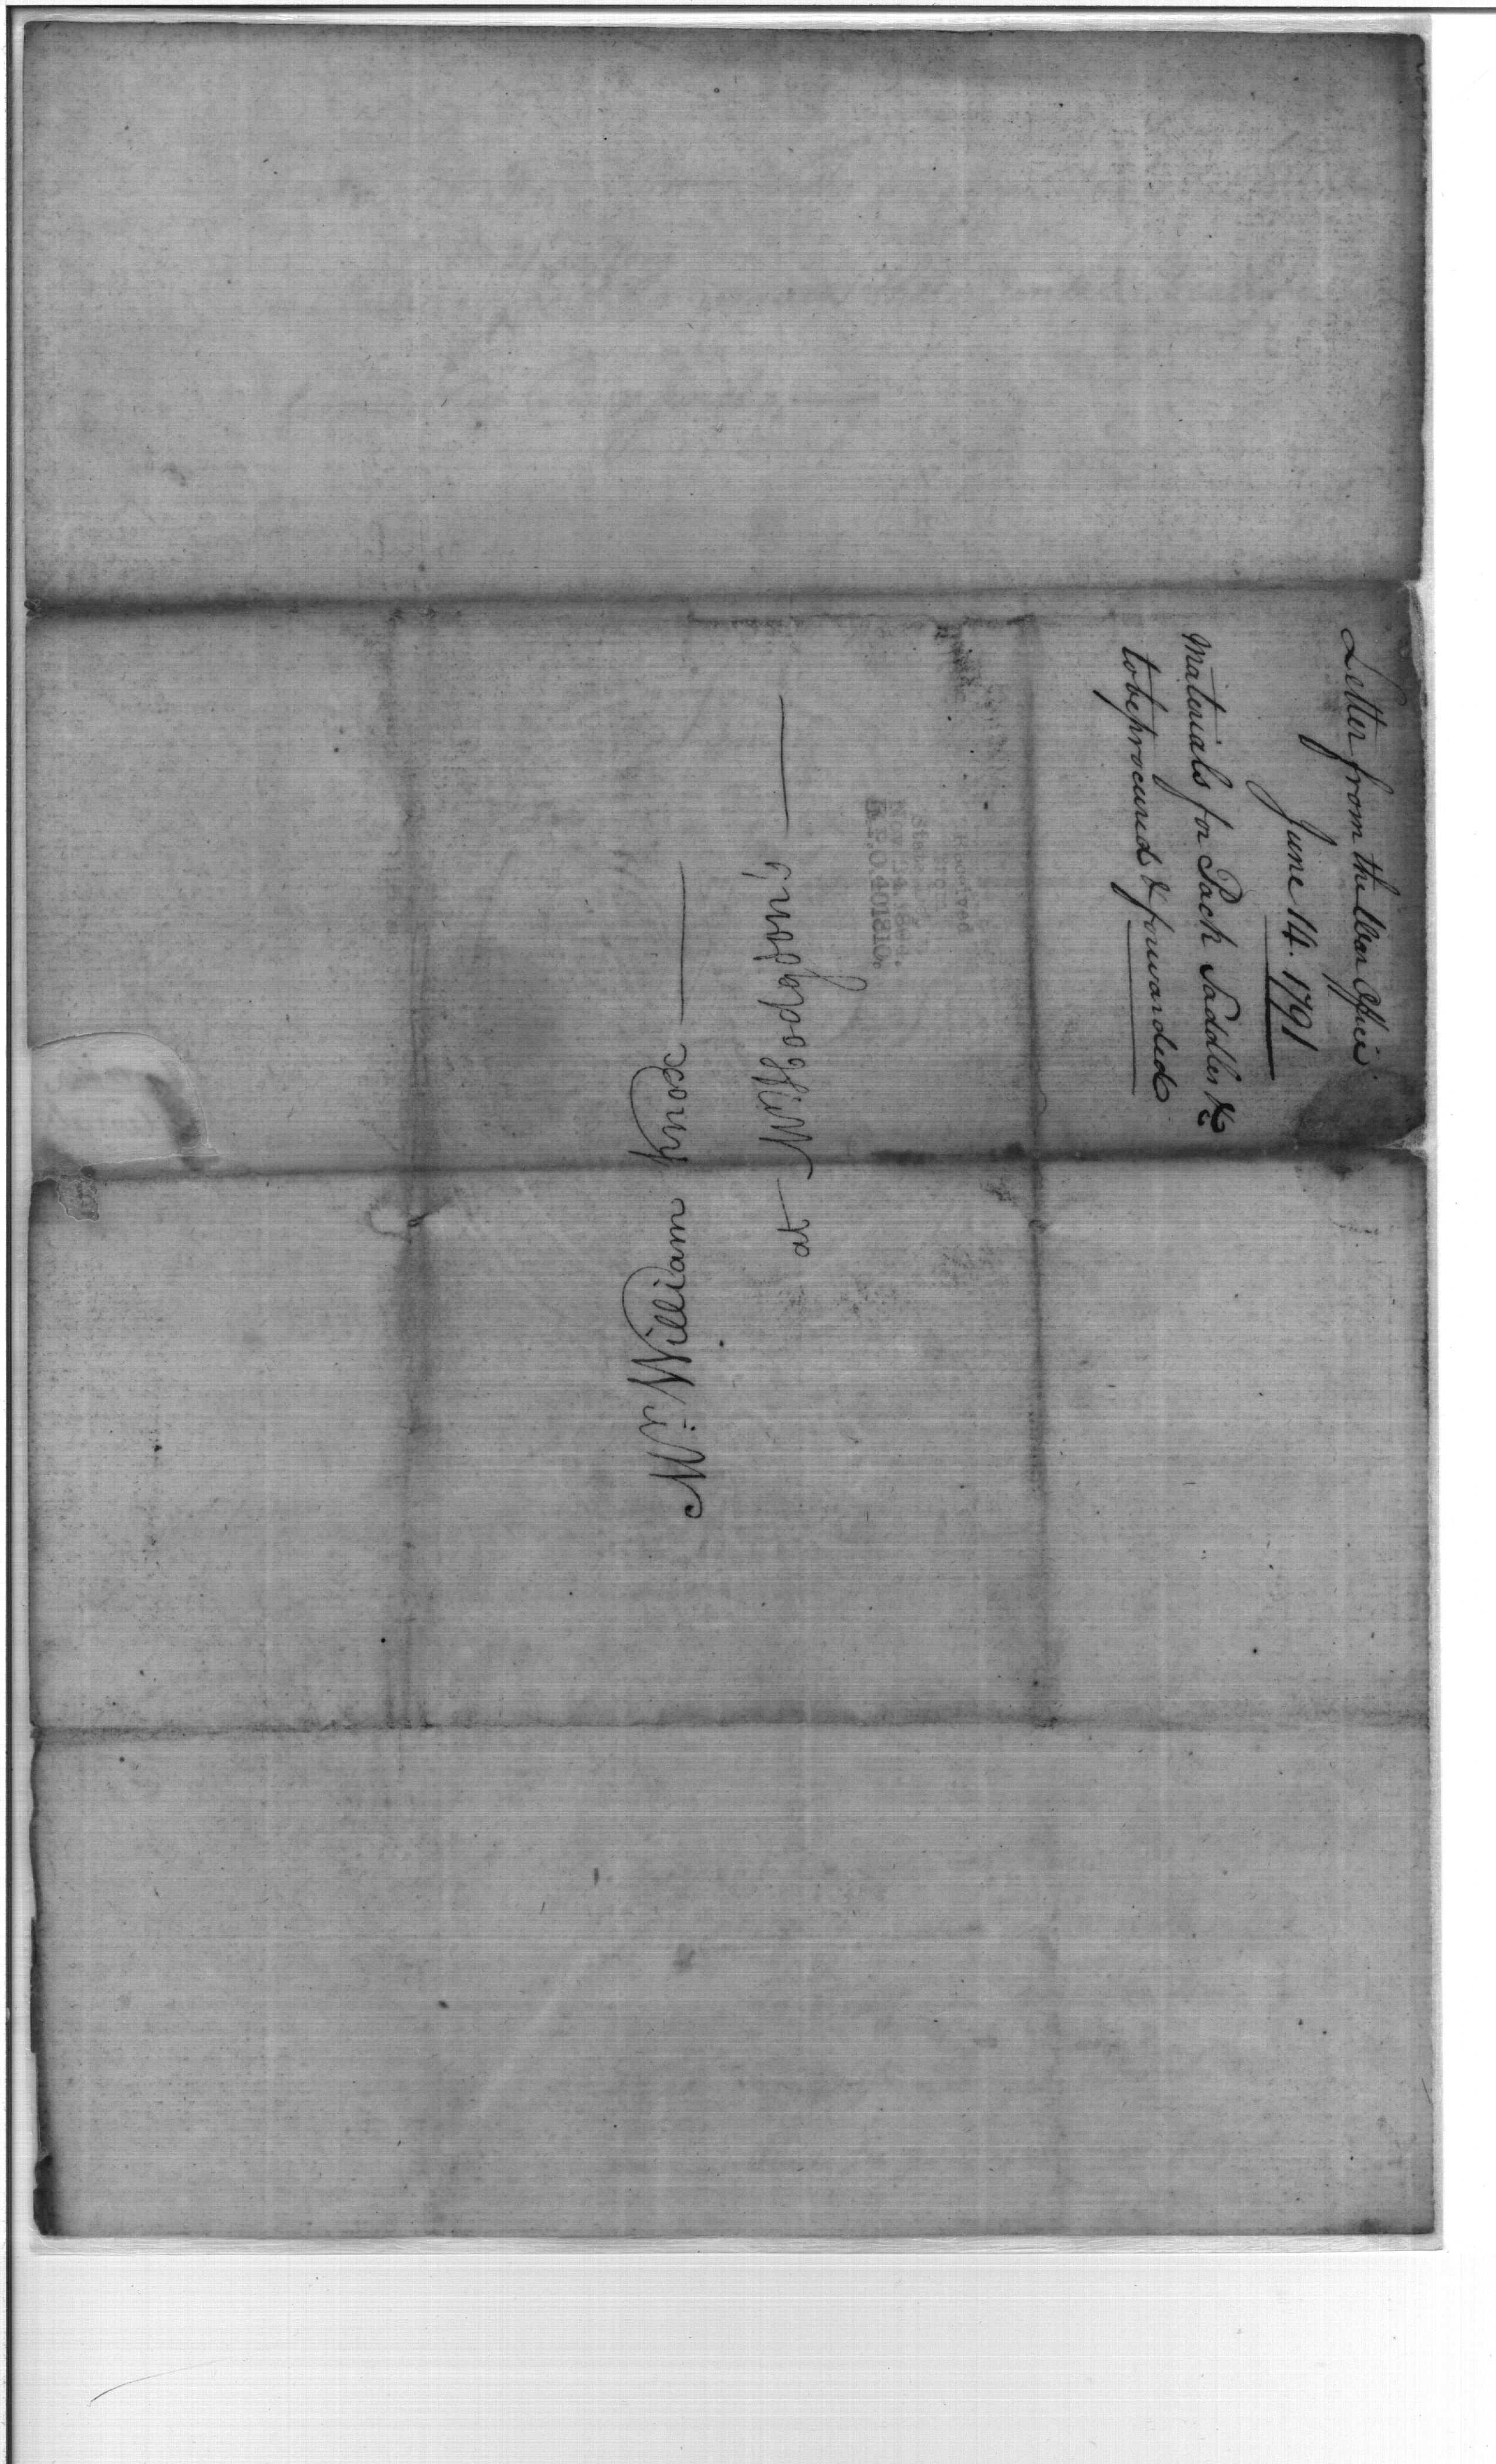 Letter from the War Office
June 14. 1791
Materials for Pack Saddles &c
to be procured & forwarded
Mr. William Knox
at Mr Hodgdon's
Received
from
State